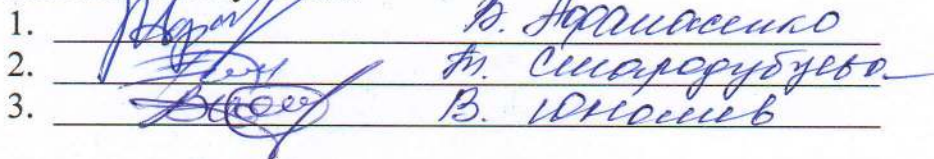 1. В. Афанасенко
2. Т. Стародубцева
3. В. Юношев